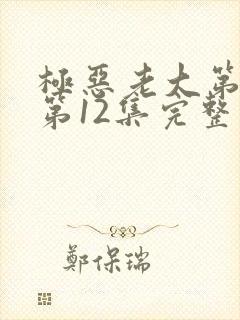 極惡老太第
第12集完整
鄭保瑞